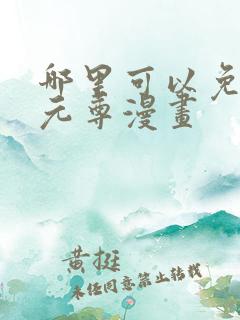 哪里可以免
元尊漫畫
黄挺
未经同意禁止转载